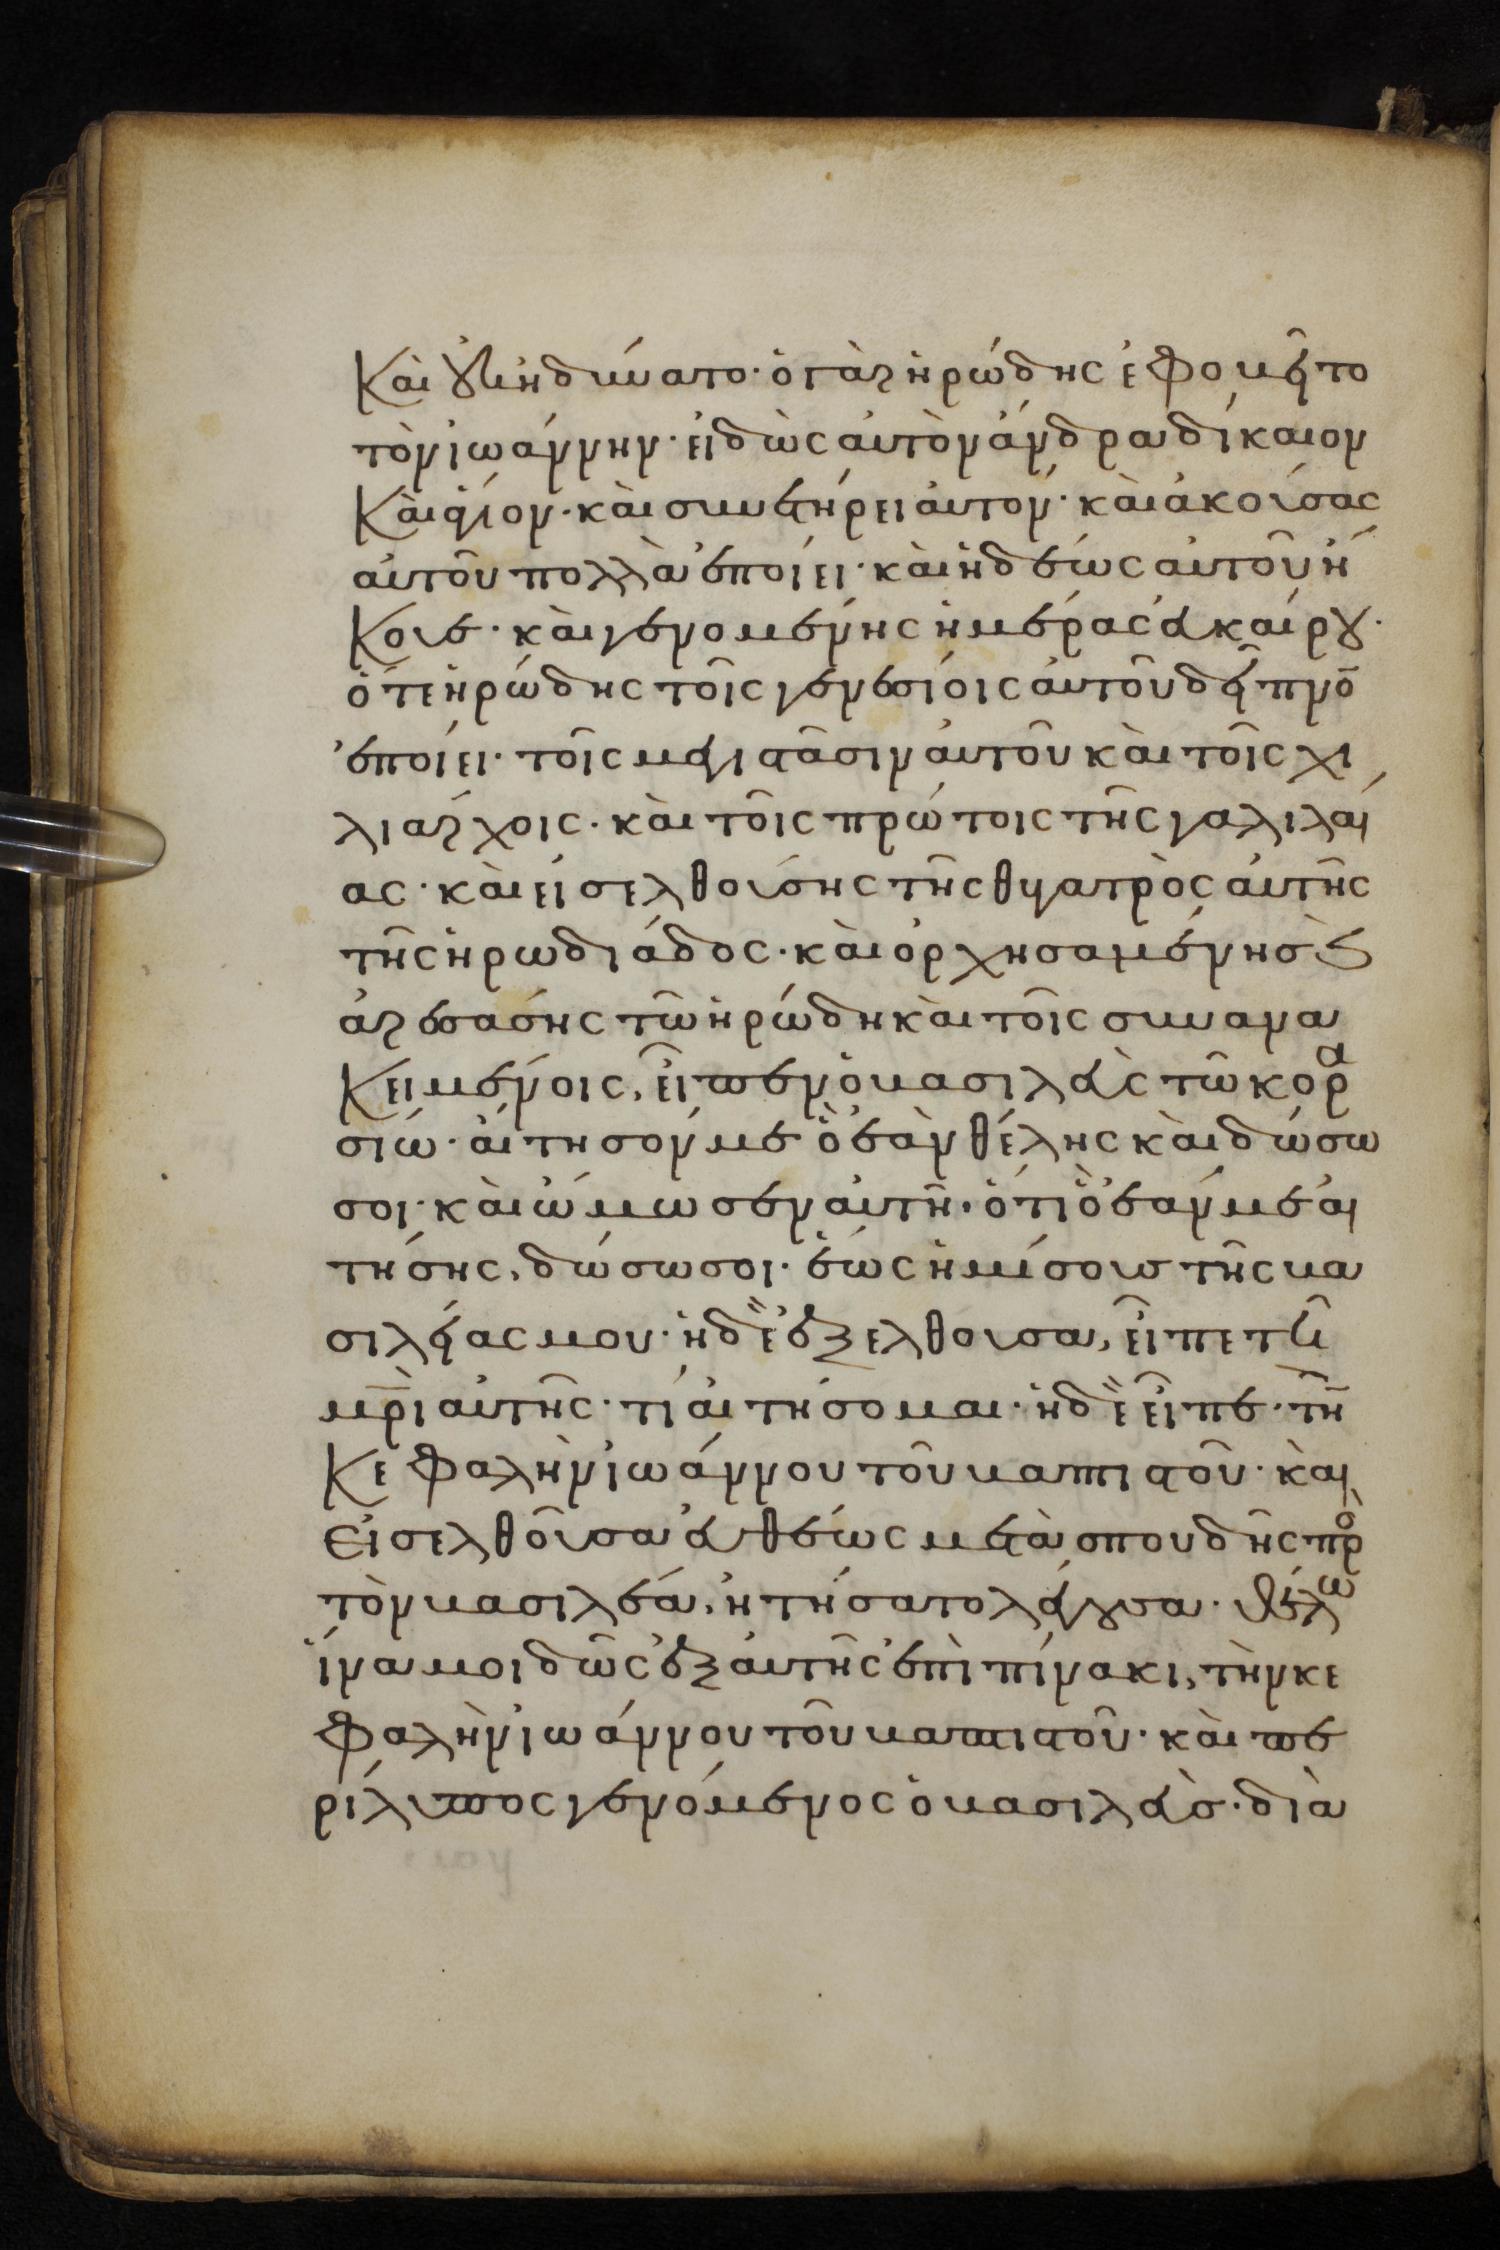 Καὶ οὐκ ἠδύνατο· ὁ γὰρ ἡρώδης ἐφοβεῖτο
τὸν ἰωάννην· εἰδὼς αὐτὸν ἄνδρα δίκαιον
Καὶ ἅγιον· καὶ συνετήρει αὐτόν· καὶ ἀκούσας
αὐτοῦ πολλὰ ἐποίει· καὶ ἡδέως αὐτοῦ ἤ
Κουε· καὶ γενομένης ἡμέρας εὐκαίρου·
ὅτε ἡρώδης τοῖς γενεσίοις αὐτοῦ δεῖπνο̄
ἐποίει· τοῖς μεγιστᾶσιν αὐτοῦ καὶ τοῖς χι
λιάρχοις· καὶ τοῖς πρώτοις τῆς γαλιλαί
ας· καὶ εἰσελθούσης τῆς θυγατρὸς αὐτῆς
τῆς ἡρωδιάδος· καὶ ὀρχησαμένης ϗ
ἀρεσάσης τῶ ἡρώδη καὶ τοῖς συνανα
Κειμένοις, εἶπεν ὁ βασιλεὺς τῶ κορα
σίω· αἴτησόν με ὃ ἐὰν θέλης καὶ δώσω
σοι· καὶ ὤμωσεν αὐτῆ· ὅτι ὃ ἐάν με αἰ
τήσης, δώσω σοι· ἕως ἡμίσους τῆς βα
σιλείας μου· ἡ δὲ ἐξελθοῦσα, εἶπε τῆ
μρ̄ὶ αὐτῆς· τί αἰτήσομαι· ἡ δὲ εἶπε· τὴ̄
Κεφαλὴν ἰωάννου τοῦ βαπτιστοῦ· καὶ
Εἰσελθοῦσα εὐθέως μετὰ σπουδῆς πρὸ
τὸν βασιλέα, ἠτήσατο λέγουσα· θέλω
ἵνα μοι δῶς ἐξ αὐτῆς ἐπὶ πίνακι, τὴν κε
φαλὴν ἰωάννου τοῦ βαπτιστοῦ· καὶ πε
ρίλυπος γενόμενος ὁ βασιλεὺς· διὰ